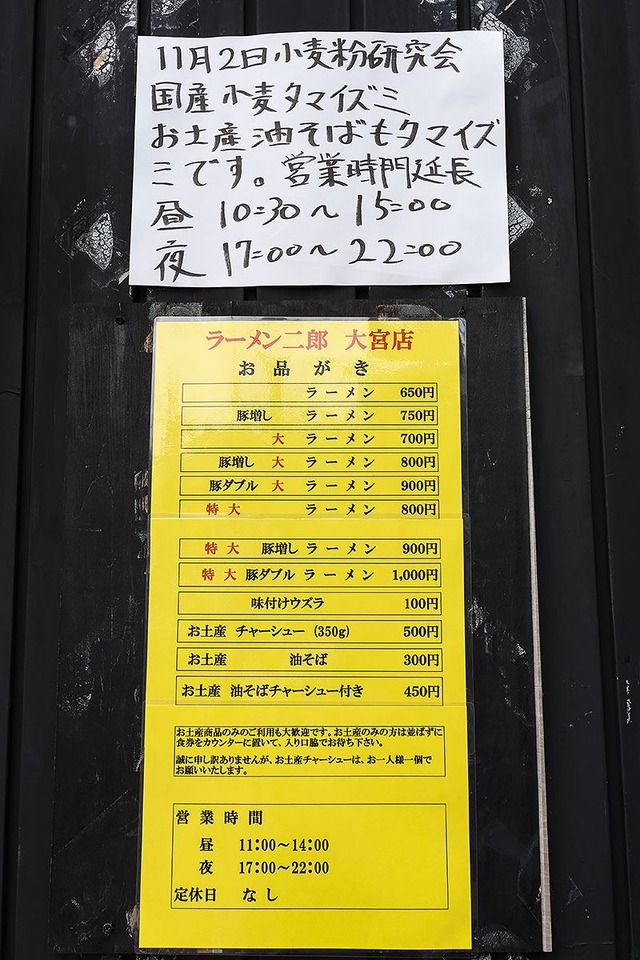 11月2日小麦粉研究会
国産小麦タマイズミ
お土産油そばもタマイズ
ミです。営業時間延長
昼 10:30〜15:00
夜 17:00〜22:00
ラーメン二郎 大宮店
お品がき
ラーメン 650円
豚増し ラーメン 750円
大 ラーメン 700円
豚増し 大 ラーメン 800円
豚ダブル 大 ラーメン 900円
特大 ラーメン 800円
特大 豚増し ラーメン 900円
特大 豚ダブル ラーメン 1,000円
味付けウズラ 100円
お土産 チャーシュー (350g) 500円
お土産 油そば 300円
お土産 油そばチャーシュー付き 450円
お土産商品のみのご利用も大歓迎です。お土産のみの方は並ばずに
食券をカウンターに置いて、入り口脇でお待ち下さい。
誠に申し訳ありませんが、お土産チャーシューは、お一人様一個で
お願いいたします。
営業時間
昼 11:00〜14:00
夜 17:00〜22:00
定休日 なし